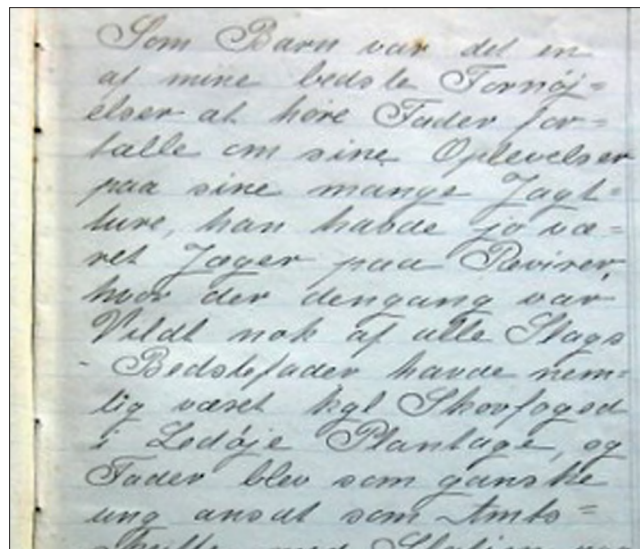 Som Barn var det en
af mine bedste Fornøj=
elser at høre Fader for=
tælle om sine Oplevelser
paa sine mange Jagt=
ture, han havde jo væ=
ret Jæger paa Revirer,
hvor der dengang var
Vildt nok af alle Slags
- Bedstefader havde nem=
lig været kgl Skovfoged
i Ledøje Plantage, og
Fader blev som ganske
ung ansat som Amts=
med Station